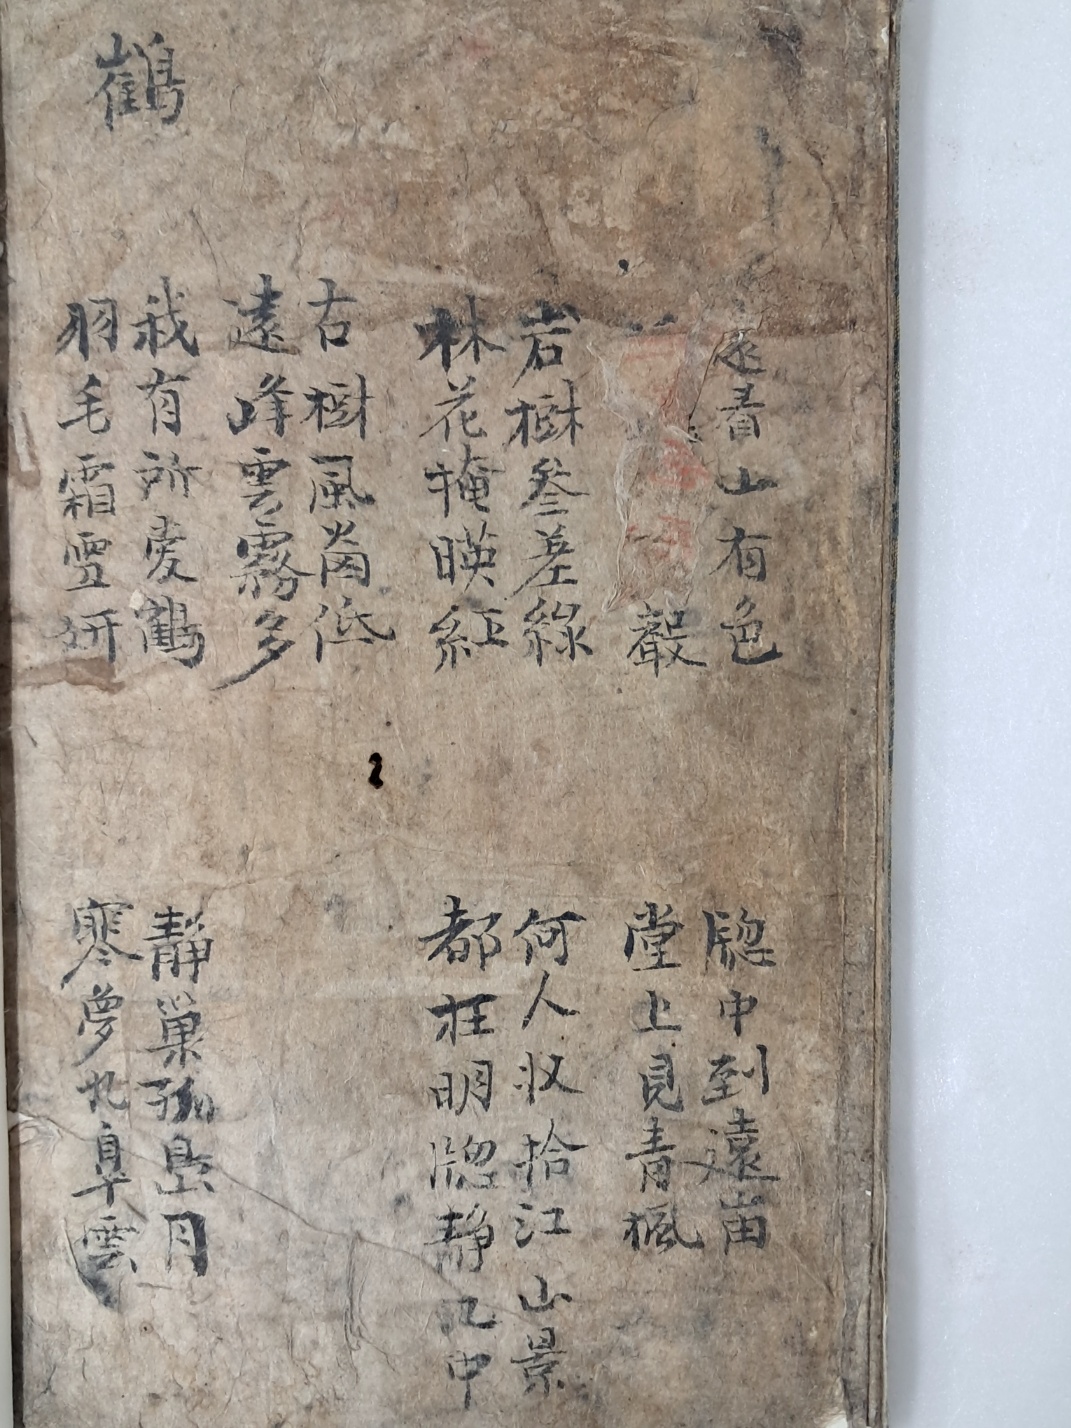 遠看山有色
聲
岩樹叄差綠
林花掩暎紅
古樹風啇低
遠峰雲霧多
鶴
我有所愛鶴
羽毛霜雪妍
牕中到遠峀
堂上見青楓
何人収拾江山景
都在明牕静几中
靜巢孤島月
寒夢九皐雲